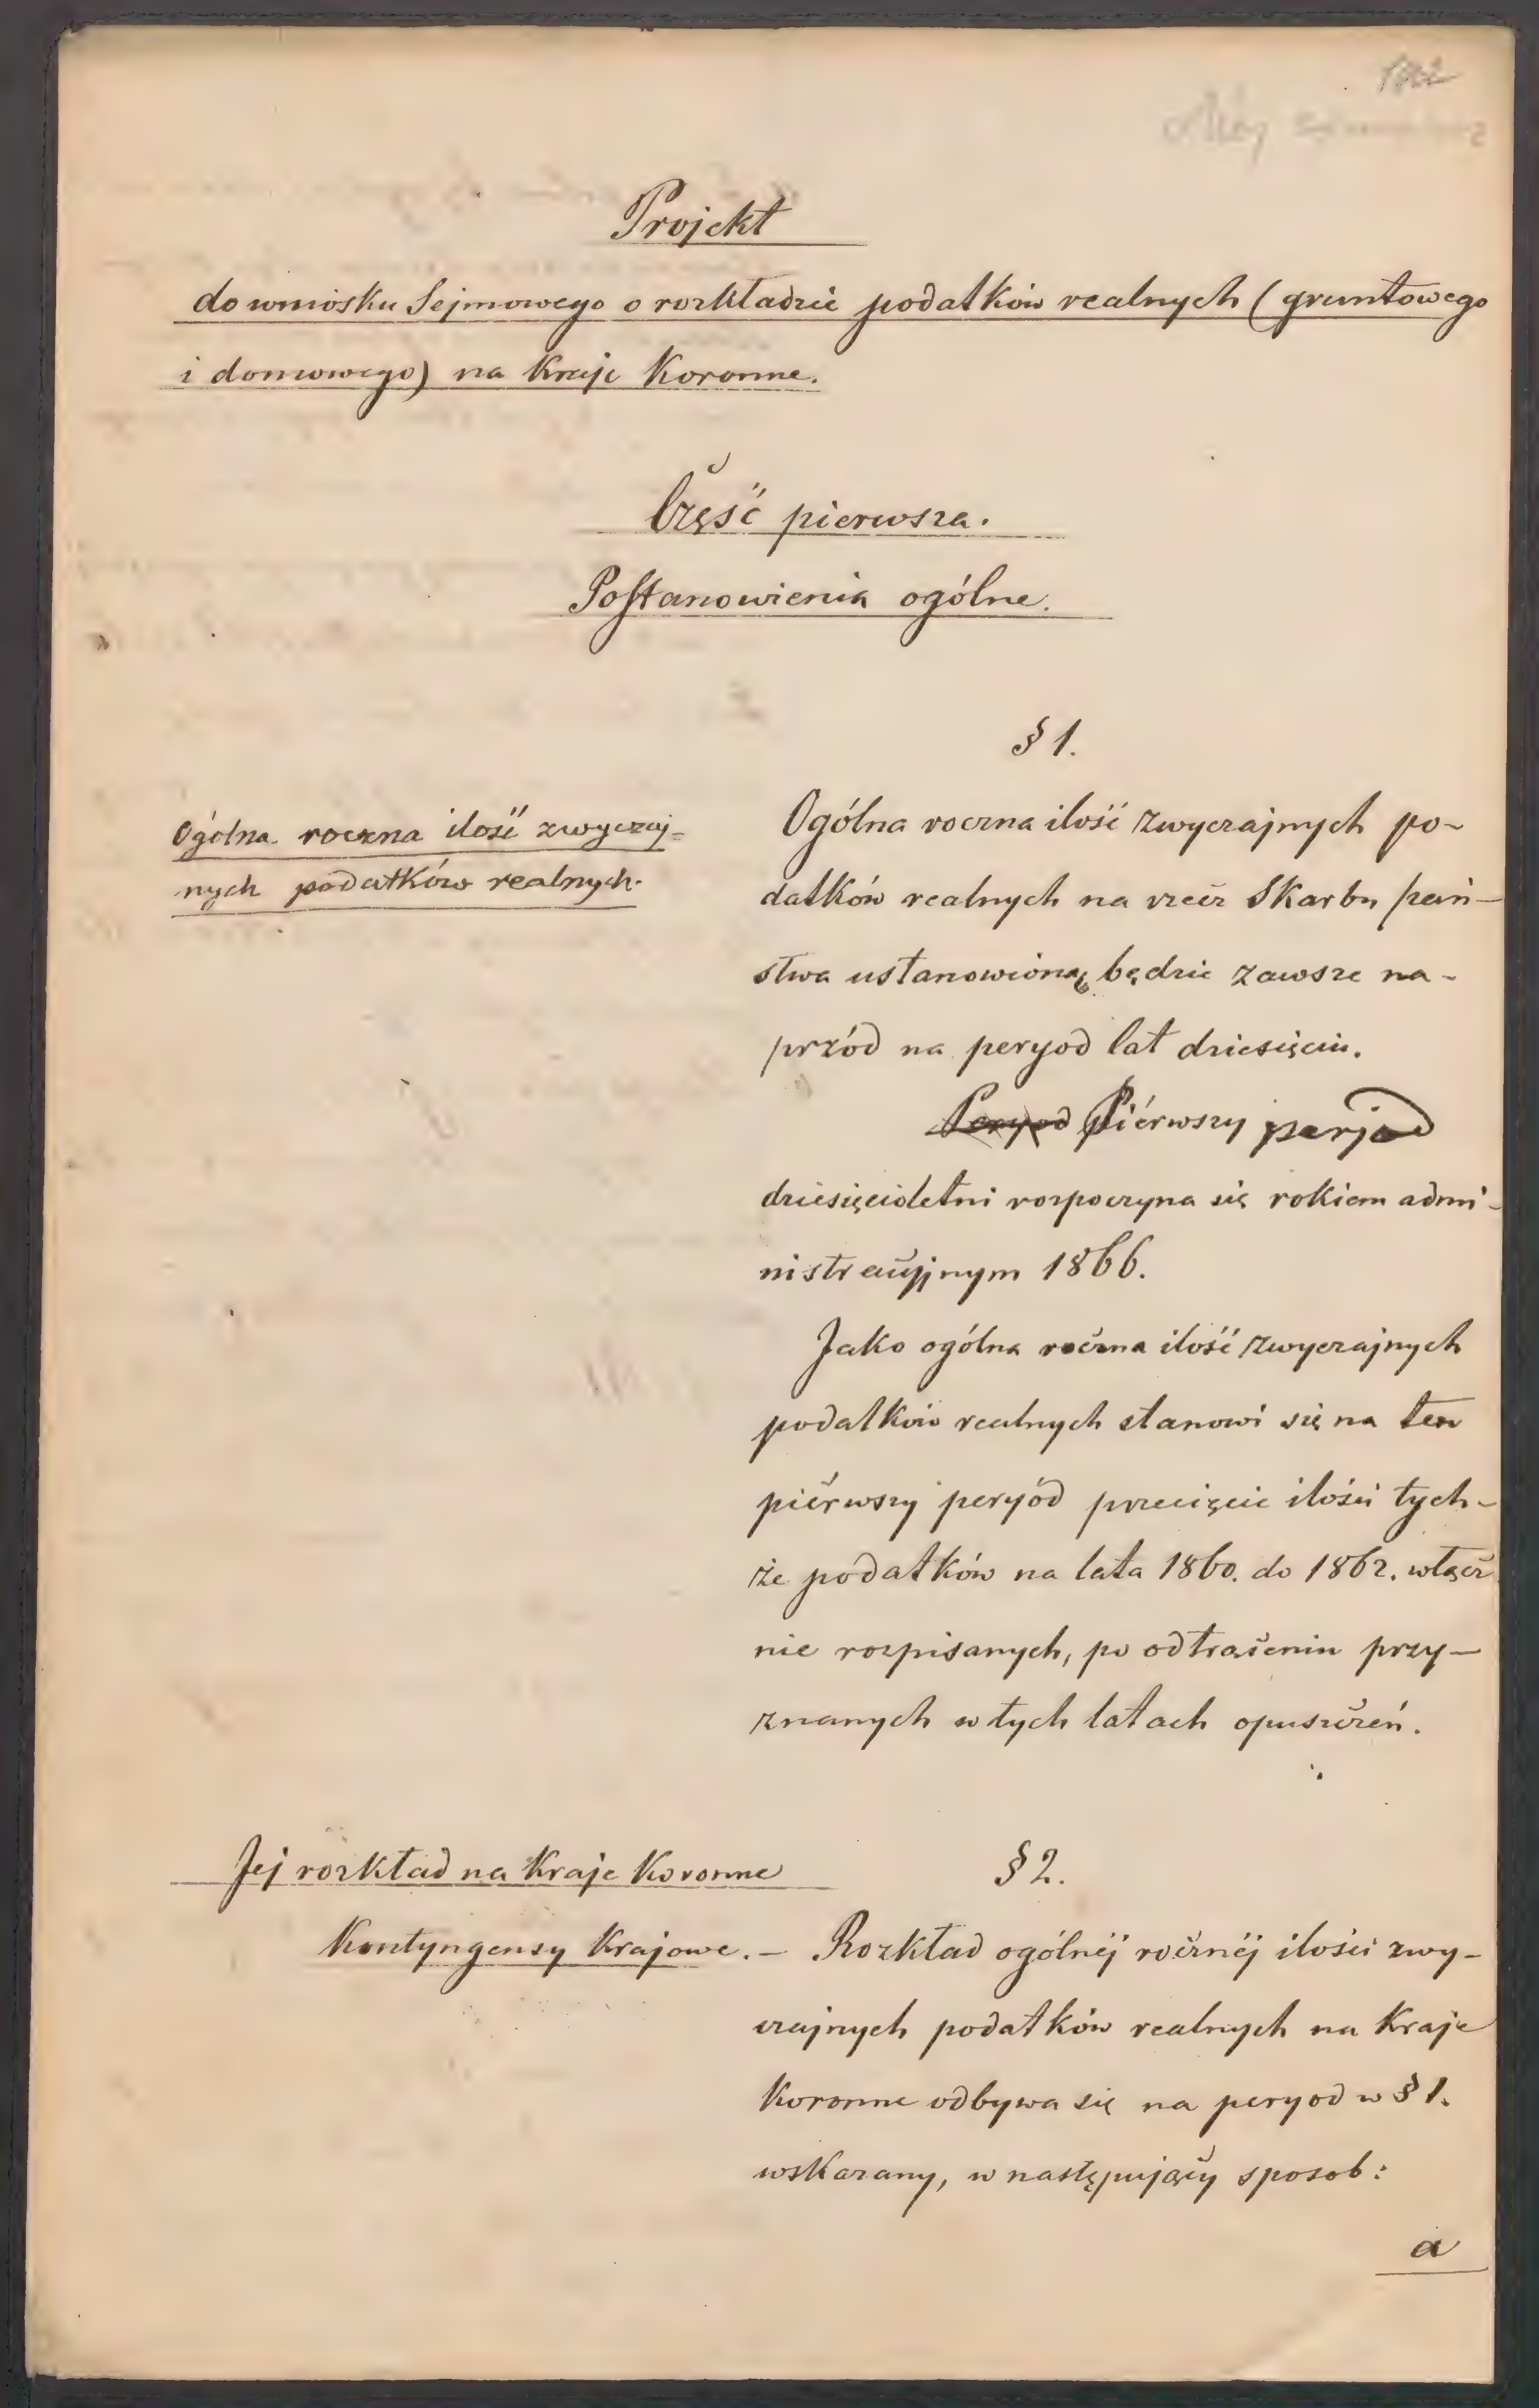 1862
Projekt
do wniosku Sejmowego o rozkładzie podatków realnych (gruntowego
i domowego) na Kraje Koronne.
Część pierwsza.
Postanowienia ogólne.
§ 1.
Ogólna roczna ilość zwyczaj-
nych podatków realnych.
Ogólna roczna ilość zwyczajnych po-
datków realnych na rzecz Skarbu pań-
stwa ustanowioną będzie zawsze na-
przód na peryod lat dziesięciu.
Peryod Piérwszy perjod
dziesięcioletni rozpoczyna się rokiem admi-
nistracyjnym 1866.
Jako ogólna roczna ilość zwyczajnych
podatków realnych stanowi się na ten
piérwszy peryód przecięcie ilości tych-
że podatków na lata 1860. do 1862. włącz
nie rozpisanych, po odtrąceniu przy-
znanych w tych latach opuszczeń.
Jej rozkład na Kraje Koronne
Kontyngensy Krajowe. –
§ 2.
Rozkład ogólnéj rocznéj ilości zwy-
czajnych podatków realnych na Kraje
Koronne odbywa się na peryod w § 1.
wskazany, w następujący sposob:
a